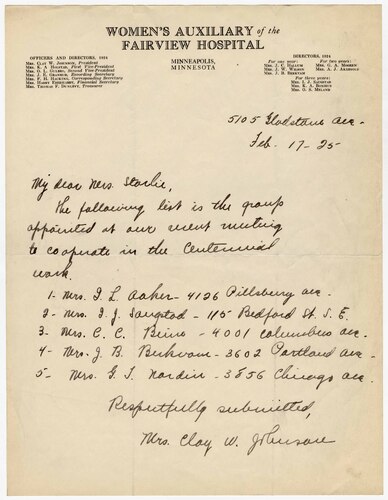 WOMEN'S AUXILIARY of the
FAIRVIEW HOSPITAL
MINNEAPOLIS,
MINNESOTA
OFFICERS AND DIRECTORS, 1924
Mrs. Clay W. Johnson, President
Mrs. K. A. First Vice-President
Mrs. O. L. Second Vice-President
Mrs. J. E. Recording Secretary
Mrs. P. H. Corresponding Secretary
Mrs. Harry Financial Secretary
Mrs. Thomas F. Treasurer
DIRECTORS, 1924
For one year:
Mrs. J. C. Hallum
Mrs. J. W. Wilson
Mrs. J. B.
For two years:
Mrs. G. A.
Mrs. A. J.
For three years:
Mrs. I. J.
Mrs. K. A.
Mrs. O. S. Meland
5105 Gladstone Ave-
Feb. 17-25
My dear Mrs.
The following list is the group
appointed at our recent meeting
to cooperate in the Centennial
work.
1- Mrs. I. L. Aaker- 4126 Pillsbury ave.
2- Mrs. I. J. - 115 Bedford St. S. E.
3- Mrs. C. C. - 4001 Columbus ave.
4- Mrs. J. B. - 3602 Portland ave-
5- Mrs. G. T. Nordin- 3856 Chicago ave.
Respectfully submitted,
Mrs. Clay W. Johnson